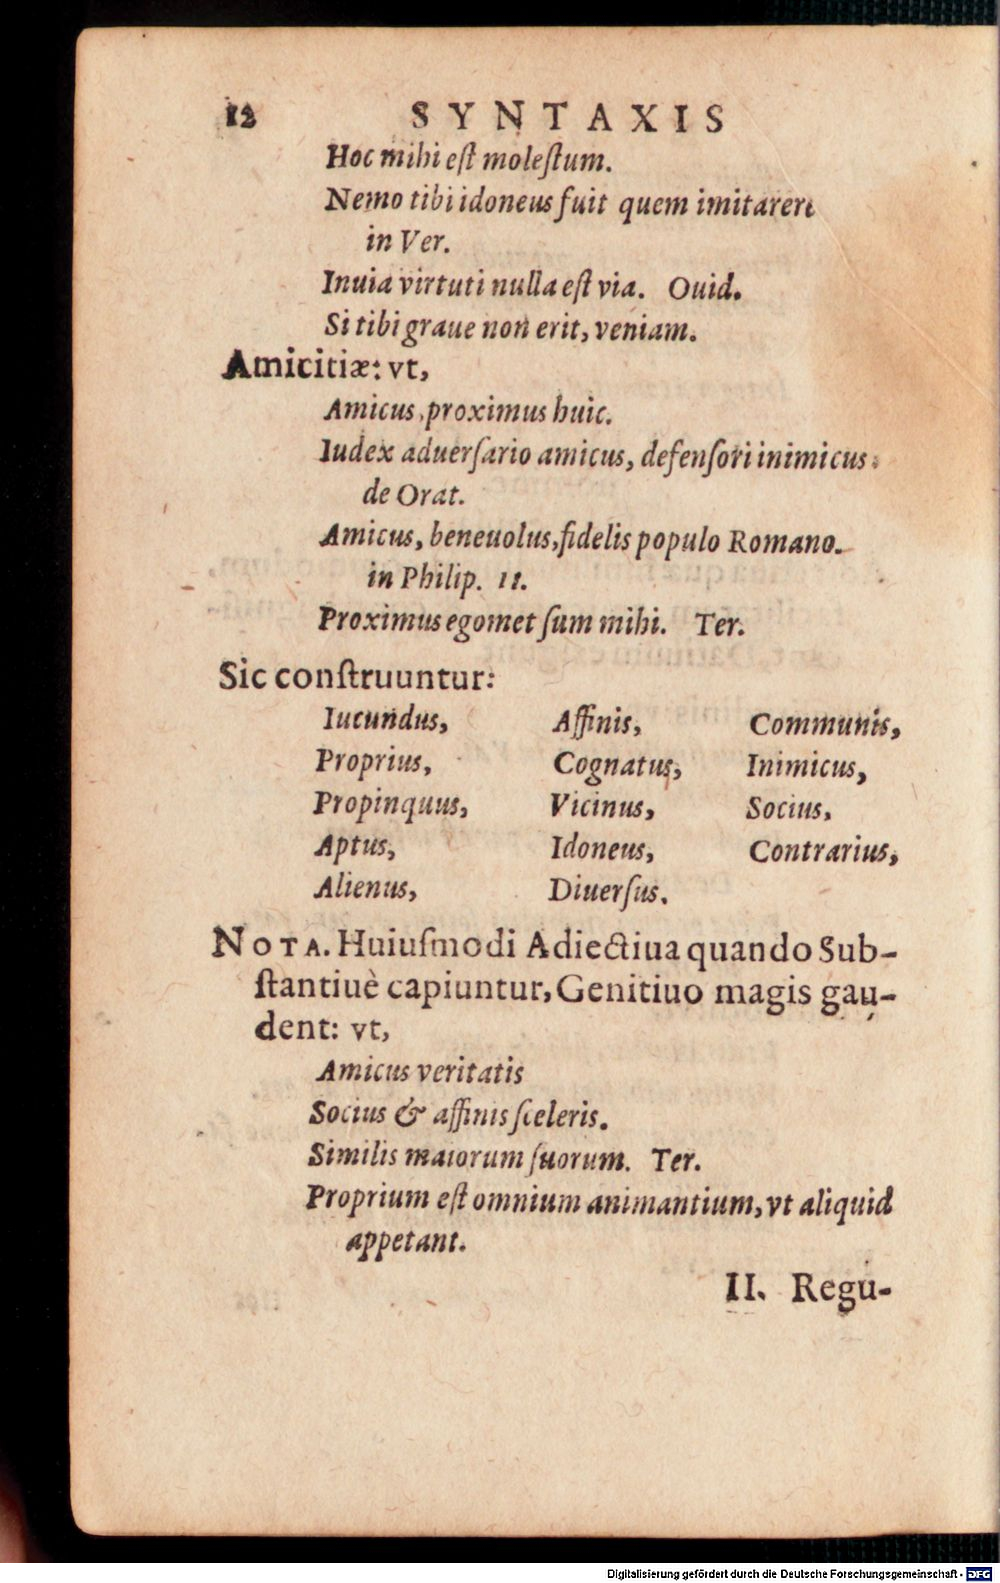 12 SYNTAXIS
Hoc mihi eſt moleſtum.
Nemo tibi idoneus fuit quem imitarere
in Ver.
Inuia virtuti nulla eſt via. Ouid.
Si tibi graue non erit, veniam.
Amicitiæ: vt,
Amicus, proximus huic.
Iudex aduerſario amicus, defenſori inimicus.
de Orat.
Amicus, beneuolus, fidelis populo Romano.
in Philip. 11.
Proximus egomet ſum mihi. Ter.
Sic conſtruuntur:
Iucundus, Affinis, Communis,
Proprius, Cognatus, Inimicus,
Propinquus, Vicinus, Socius,
Aptus, Idoneus, Contrarius,
Alienus, Diuerſus.
NOTA. Huiuſmodi Adiectiua quando Sub-
ſtantiuè capiuntur, Genitiuo magis gau-
dent: vt,
Amicus veritatis
Socius & affinis ſceleris.
Similis maiorum ſuorum. Ter.
Proprium eſt omnium animantium, vt aliquid
appetant.
II. Regu-
Digitalisierung gefördert durch die Deutsche Forschungsgemeinschaft - DFG